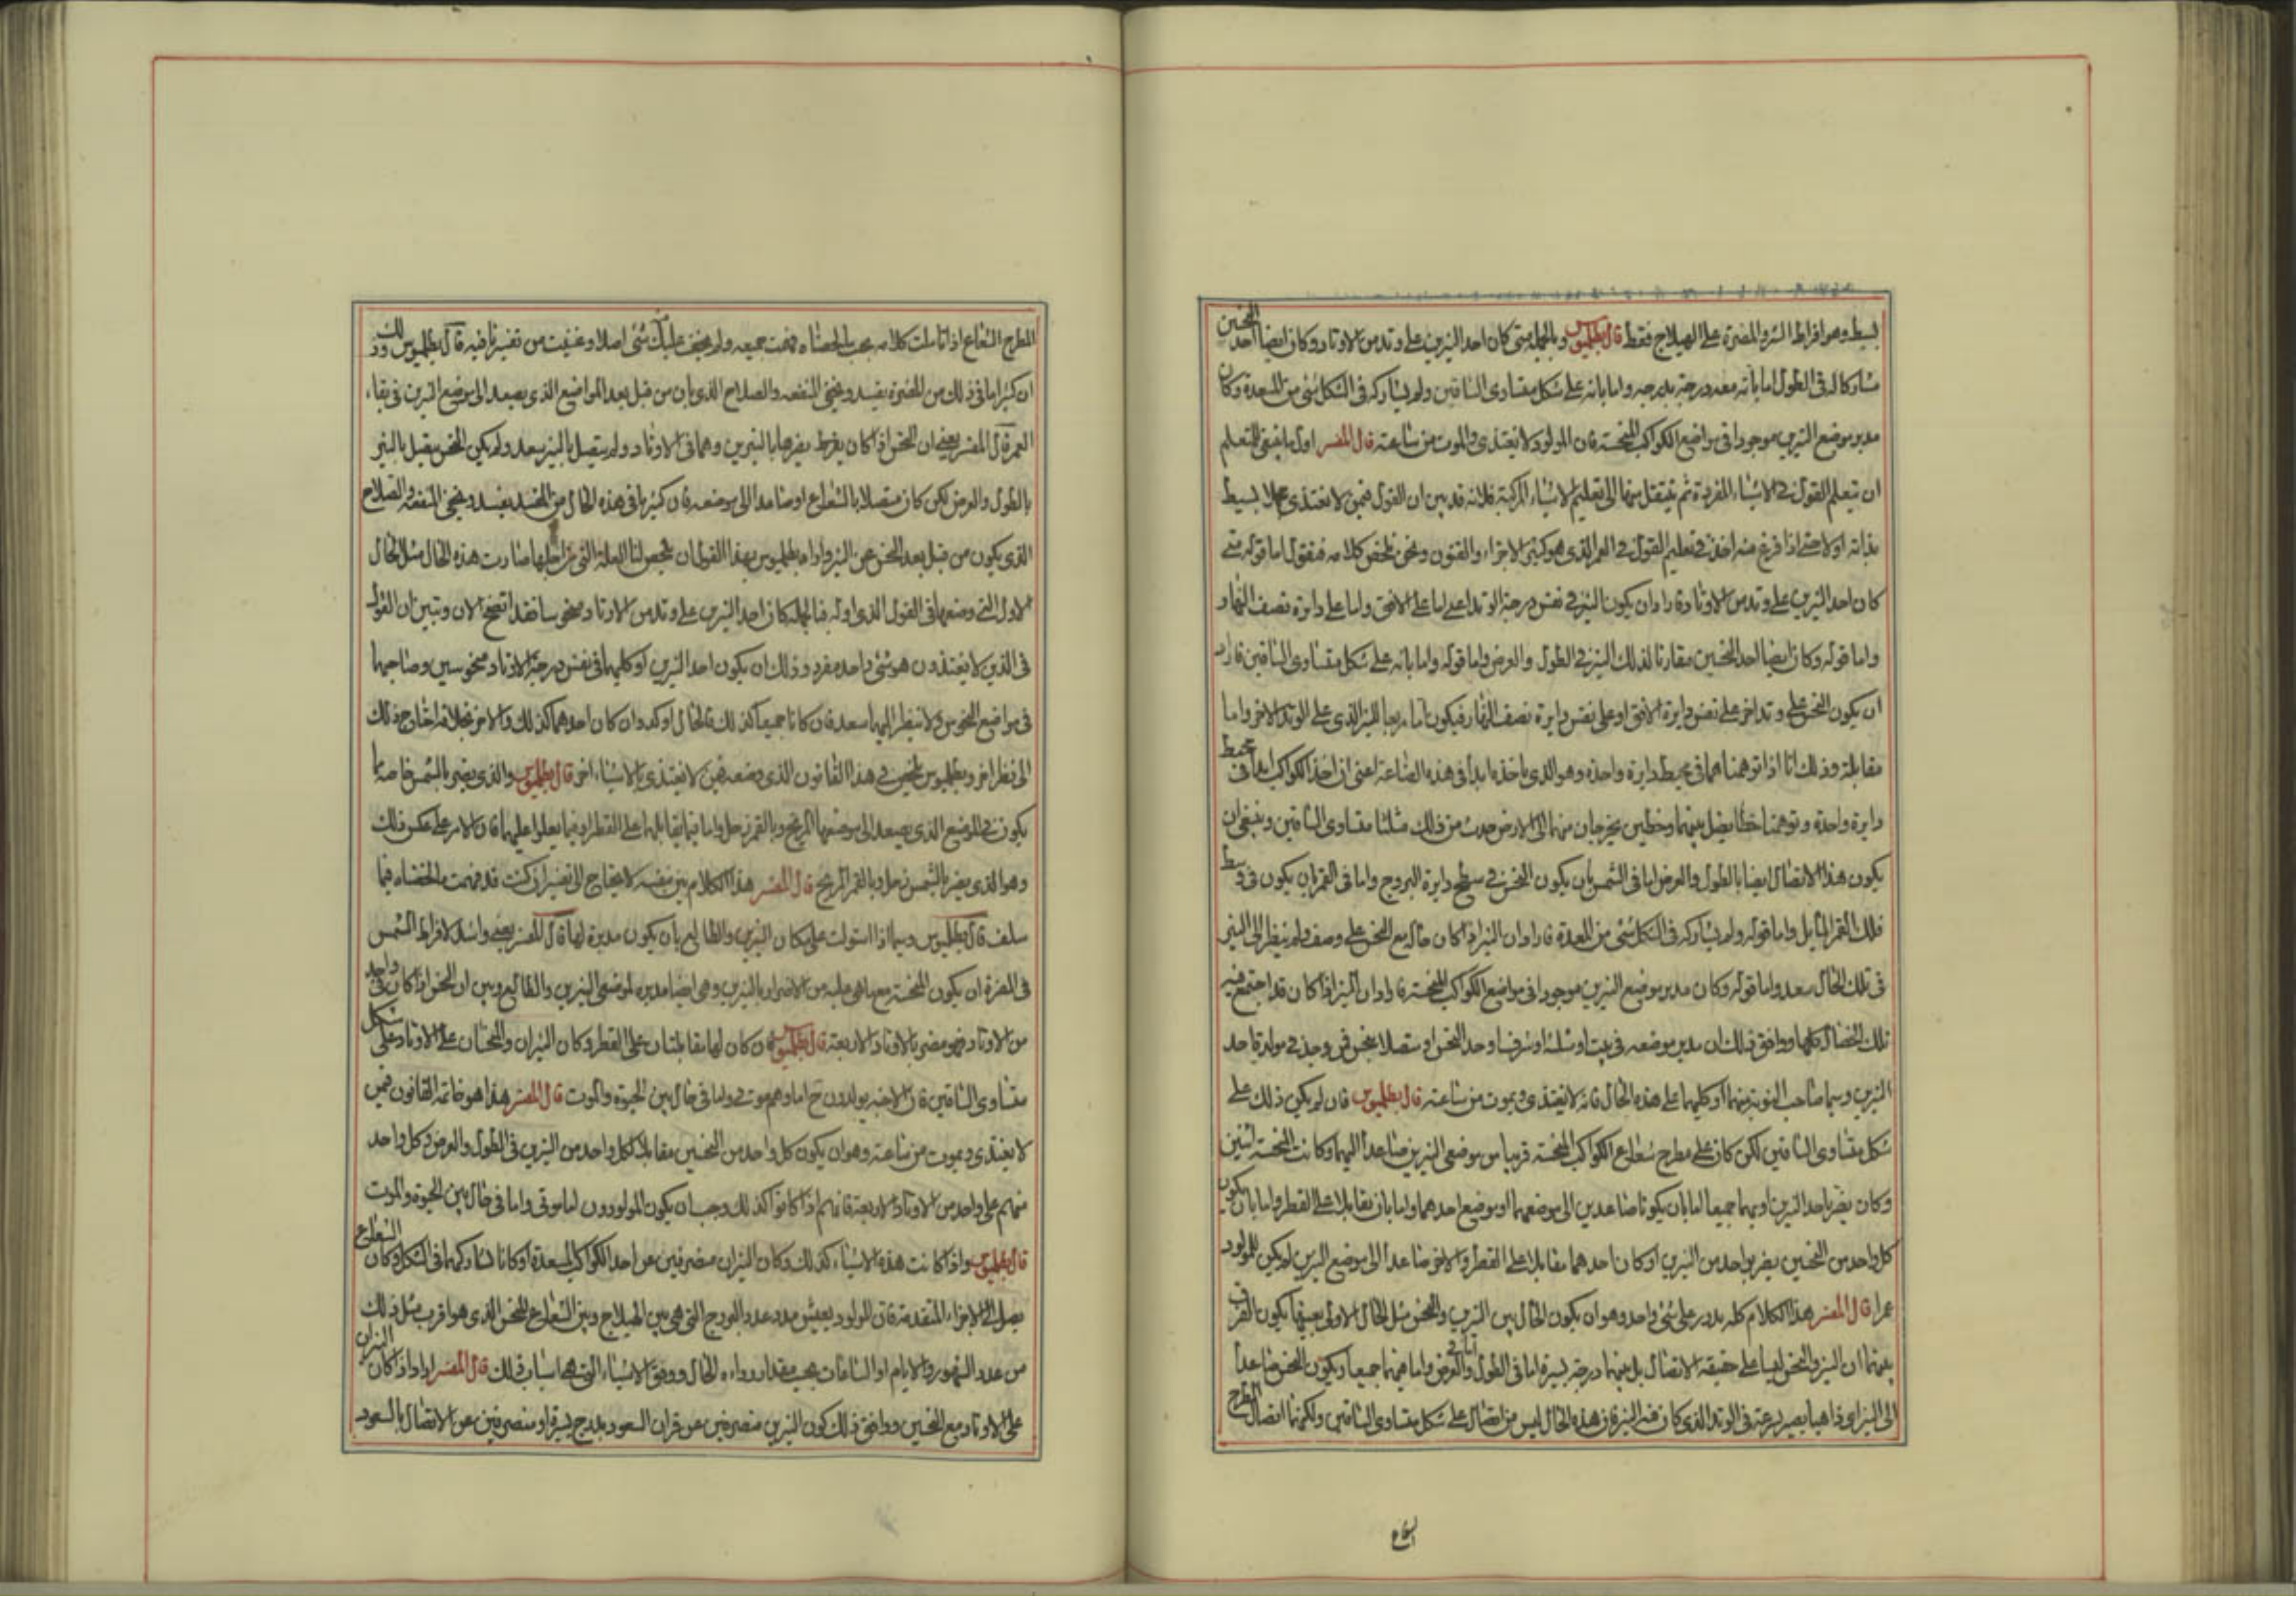 بسيط وهو افراط الشر والمضرة على الهيلاج فقط قال بطلميوس وبالجملة متى كان احد النيرين على وتد من الاوتاد وكان ايضا احد النحسين
مشاركا له فى الطول اما بانه معه درجة بدرجه واما بانه على شكل متساوى الساقين ولم يشاركه فى الشكل شئ من المسعدة وكان
مدبر موضع النيرين موجودا فى مواضع الكواكب المنحسة فان المولود لا يغتذى والموت من ساعته قال المفسر اول ما ينبغى للمتعلم
ان يتعلم القول فى الاشياء المفردة ثم ينتقل منها الى تعليم الاشياء المركبة فلانه قد بين ان القول فيمن لا يغتذى بسيط
بذاته اولا حتى اذا فرغ منه اخذ فى تعليم القول فى العمر الذى هو كثير الاجزاء والفنون ونحن نلخص كلامه فنقول اما قوله متى
كان احد النيرين على وتد من الاوتاد فاراد ان يكون النير فى نفس درجة الوتد اعنى اما على الافق واما على دايرة نصف النهار
واما قوله وكان ايضا احد النحسين مقارنا لذلك النير فى الطول والعرض واما قوله واما بانه على شكل متساوى الساقين فاراد
ان يكون النحس على وتد اخر على نفس دايرة الافق او على نفس دايرة نصف النهار فيكون اما مربعا للنير الذى على الوتد الاخر واما
مقابلة وذلك انا اذا توهمناهما فى محيط دايرة واحدة وهو الذى ياخذه ابدا فى هذه الصناعة اعنى ان اخذ الكواكب ابدا فى محيط
دايرة واحدة وتوهمنا خطا يصل بينهما وخطين يخرجان منهما الى الارض حدث من ذلك مثلثا متساوى الساقين وينبغى ان
يكون هذا الاتصال ايضا بالطول والعرض اما فى الشمس بان يكون النحس فى سطح دايرة البروج واما فى القمر ان يكون فى وسط
فلك القمر المايل واما قوله ولم يشاركه فى الشكل شئ من المسعدة فاراد ان النير اذا كان حاله مع النحس على وصف ولم ينظر الى النير
فى تلك الحال سعد واما قوله وكان مدبر موضع النيرين موجودا فى مواضع الكواكب المنحسة فاراد ان النير اذا كان قد اجتمع فيه
تلك الخصال كلها ووافق ذلك ان مدبر موضعه فى بيت او مثلثة او شرف او حد النحس او متصلا بنحس فمن وجد فى مولده احد
النيرين وسيما صاحب النوبة منهما او كليهما على هذه الحال فانه لا يغتذى ويموت من ساعته قال بطلميوس فان لم يكن ذلك على
شكل متساوى الساقين لكن كان على مطرح شعاع الكواكب المنحسة قريبا من موضعى النيرين صاعدا اليهما وكانت المنحسة اثنين
وكان يضر باحد النيرين او بهما جميعا اما بان يكونا صاعدين الى موضعهما او موضع احدهما واما بان يقابلا على القطر واما بان يكون
كل واحد من النحسين يضر بواحد من النيرين او كان احدهما مقابلا على القطر والاخر صاعدا الى موضع النيرين لم يكن للمولود
عمر قال المفسر هذا الكلام كله يدور على شئ واحد وهو ان يكون الحال بين النيرين والنحس مثل الحال الاولى بعينها يكون الفرق
بينهما ان النير والنحس ليسا على حقيقة الاتصال بل بينهما درجة يسيرة اما فى الطول واما فى العرض واما فيهما جميعا ويكون النحس صاعدا
الى النير اى ذاهبا يصير بسرعة فى الوتد الذى كان فيه النير فان هذه الحال ليس من اتصال على شكل متساوى الساقين ولكنها اتصال المطرح
الشعاع
المطرح الشعاع اذا تاملت كلامه بحسب ما لخصناه فهمت جميعه ولم يخف عليك منه شئ اصلا وغنيت من تفسيرنا فيه قال بطلميوس وذلك
ان كثيرا ما فى ذلك من المضرة يفسد ويمحق المنفعه والصلاح الذى بان من قبل بعد المواضع الذى يصعد الى موضع النيرين فى بقاء
العمر قال المفسر يعنى ان النحس اذا كان يفرط بضررها بالنيرين وهما فى الاوتاد ولم يتصل بالنير سعد ولم يكن النحس متصل بالنير
بالطول والعرض لكن كان متصلا بالشعاع او صاعدا الى موضعه فان كثيرا ما فى هذه الحال من المفسد يفسد ويمحق المنفعة والصلاح
الذى يكون من قبل بعد النحس عن النير واراد بطلميوس بهذا القول ان يلخص لنا العلة التى من اجلها صارت هذه الحال مثل الحال
الاول التى وضعها فى القول الذى اوله فبالجملة كان احد النيرين على وتد من الاوتاد منحوسا فقد اتضح الان وتبين ان القول
فى الذين لا يغتذون هو شئ واحد مفرد وذلك ان يكون احد النيرين او كليهما فى نفس درجة الاوتاد منحوسين وصاحبهما
فى مواضع النحوس ولا ينظر اليهما سعد فان كانا جميعا كذلك فالحال اوكد وان كان احدهما كذلك والاخر بخلافه احتاج ذلك
الى نظر اخر وبطلميوس يلخص فى هذا القانون الذى وضعه فيمن لا يغتذى بالاشياء اخر قال بطلميوس والذى يضر بالشمس خاصة ما
يكون فى الموضع الذى يصعد الى موضعها المريخ وبالقمر زحل واما فيما يقابلهما على القطر او فيما يعلوا عليهما فان الامر على عكس ذلك
وهو الذى يضر بالشمس زحل وبالقمر المريخ قال المفسر هذا الكلام بين بنفسه لا يحتاج الى تفسير ان كنت قد فهمت ما لخصناه فيما
سلف قال بطلميوس وسيما اذا استولت على مكان النيرين والطالع بان يكون مدبرة لها قال المفسر يعنى واشد لافراط الشمس
فى المضرة ان يكون المنحسة مع ما هى عليه من الاضرار بالنيرين وهى ايضا مدبره لموضعى النيرين والطالع وبين ان النحس اذا كان فى واحد
من الاوتاد فهو مضر بالاوتاد الاربعة قال بطلميوس فان كان لها مقابلتان على القطر وكان النيران والنحسان على الاوتاد على شكل
متساوى الساقين فان الاجنه يولدون ح اما وهم موتى واما فى حال بين الحيوة والموت قال المفسر هذا هو خاتمة القانون فيمن
لا يغتذى ويموت من ساعته وهو ان يكون كل واحد من النحسين مقابلا لكل واحد من النيرين فى الطول والعرض وكل واحد
منهم على واحد من الاوتاد الاربعة فانهم اذا كانوا كذلك وجب ان يكون المولودون اما موتى واما فى حال بين الحيوة والموت
قال بطلميوس واذا كانت هذه الاشياء كذلك وكان النيران منصرفين عن احد الكواكب المسعدة او كانا تشاركهما فى الشكل وكان الشعاع
يصل الى الاجزاء المتقدمة فان المولود يعيش مدد عدد البروج التى هى بين الهيلاج وبين الشعاع النحس الذى هو اقرب مثل ذلك
من عدد الشهور والايام او الساعات بحسب مقدار رداءة الحال ووفق الاشياء التى هى اسباب ذلك قال المفسر اراد اذا كان النيران
على الاوتاد مع النحسين ووافق ذلك كون النيرين منصرفين عن قران السعود بدرج يسيرة او منصرفين عن الاتصال بالسعود